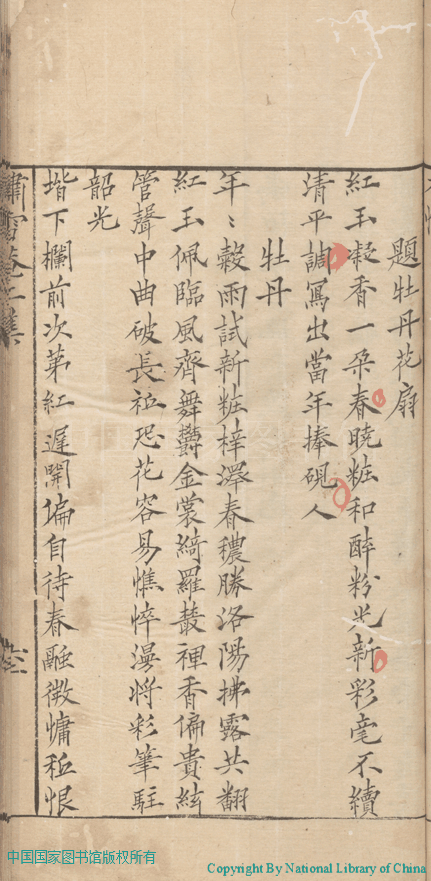 題牡丹花扇
紅玉凝香一朶春曉粧和醉粉光新彩毫不續
清平調寫出當年捧硯人
牡丹
年〻榖雨試新粧梓澤春穠勝洛陽拂露共翻
紅玉佩臨風齊舞欝金裳綺羅叢裡香偏貴絃
管聲中曲破長祗恐花容易憔悴漫將彩筆駐
韶光
堦下欄前次第紅遲開偏自待春融微慵秪恨
中国国家图书馆版权所有
Copyright By National Library of China